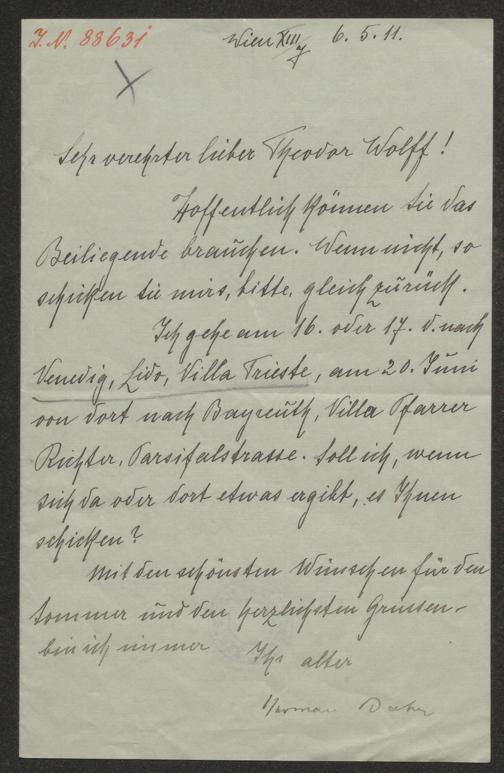 I.N. 88631
Wien XIII/7 6.5.11.
Sehr verehrter lieber Theodor Wolff!
Hoffentlich können Sie das
Beiliegende brauchen. Wenn nicht, so
schicken Sie mirs, bitte, gleich zurück.
Ich gehe am 16. oder 17. d. nach
Venedig, Lido, Villa Trieste, am 20. Juni
von dort nach Bayreuth, Villa Pfarrer
Richter, Parsifalstrasse. Soll ich, wenn
sich da oder dort etwas ergibt, es Ihnen
schicken?
Mit den schönsten Wünschen für den
Sommer und den herzlichsten Grüssen
bin ich immer
Ihr alter
Herman Bahr